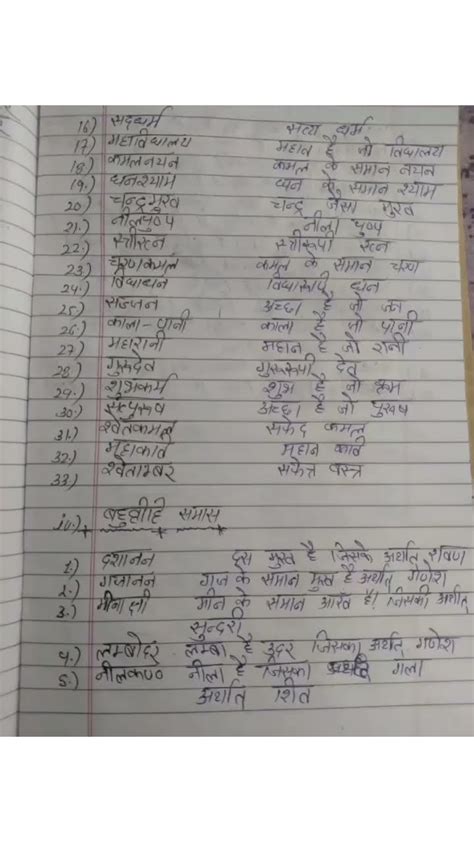 16) सद्धर्म सत्य धर्म
17) महाविद्यालय महान है जो विद्यालय
18) कमलनयन कमल के समान नयन
19.) घनश्याम घन के समान श्याम
20) चन्द्रमुख चन्द्र जैसा मुख
21.) नीलपुष्प नीला पुष्प
22.) स्त्रीरत्न स्त्रीरूपी रत्न
23.) चरणकमल कमल के समान चरण
24.) विद्याधन विद्यारूपी धन
25.) सज्जन अच्छा है जो जन
26.) काला-पानी काला है जो पानी
27.) महारानी महान है जो रानी
28) गुरुदेव गुरुरूपी देव
29.) शुभकर्म शुभ है जो कर्म
30.) सत्पुरुष अच्छा है जो पुरुष
31.) श्वेतकमल सफेद कमल
32.) महाकवि महान कवि
33) श्वेताम्बर सफेद वस्त्र
iv.) बहुव्रीहि समास
1.) दशानन दस मुख है जिसके अर्थात रावण
2.) गजानन गज के समान मुख है अर्थात् गणेश
3.) मीनाक्षी मीन के समान आँख है। जिसकी अर्थात्
सुन्दरी
4.) लम्बोदर लम्बा है उदर जिसका अर्थात् गणेश
5.) नीलकण्ठ नीला है जिसका गला
अर्थात् शिव